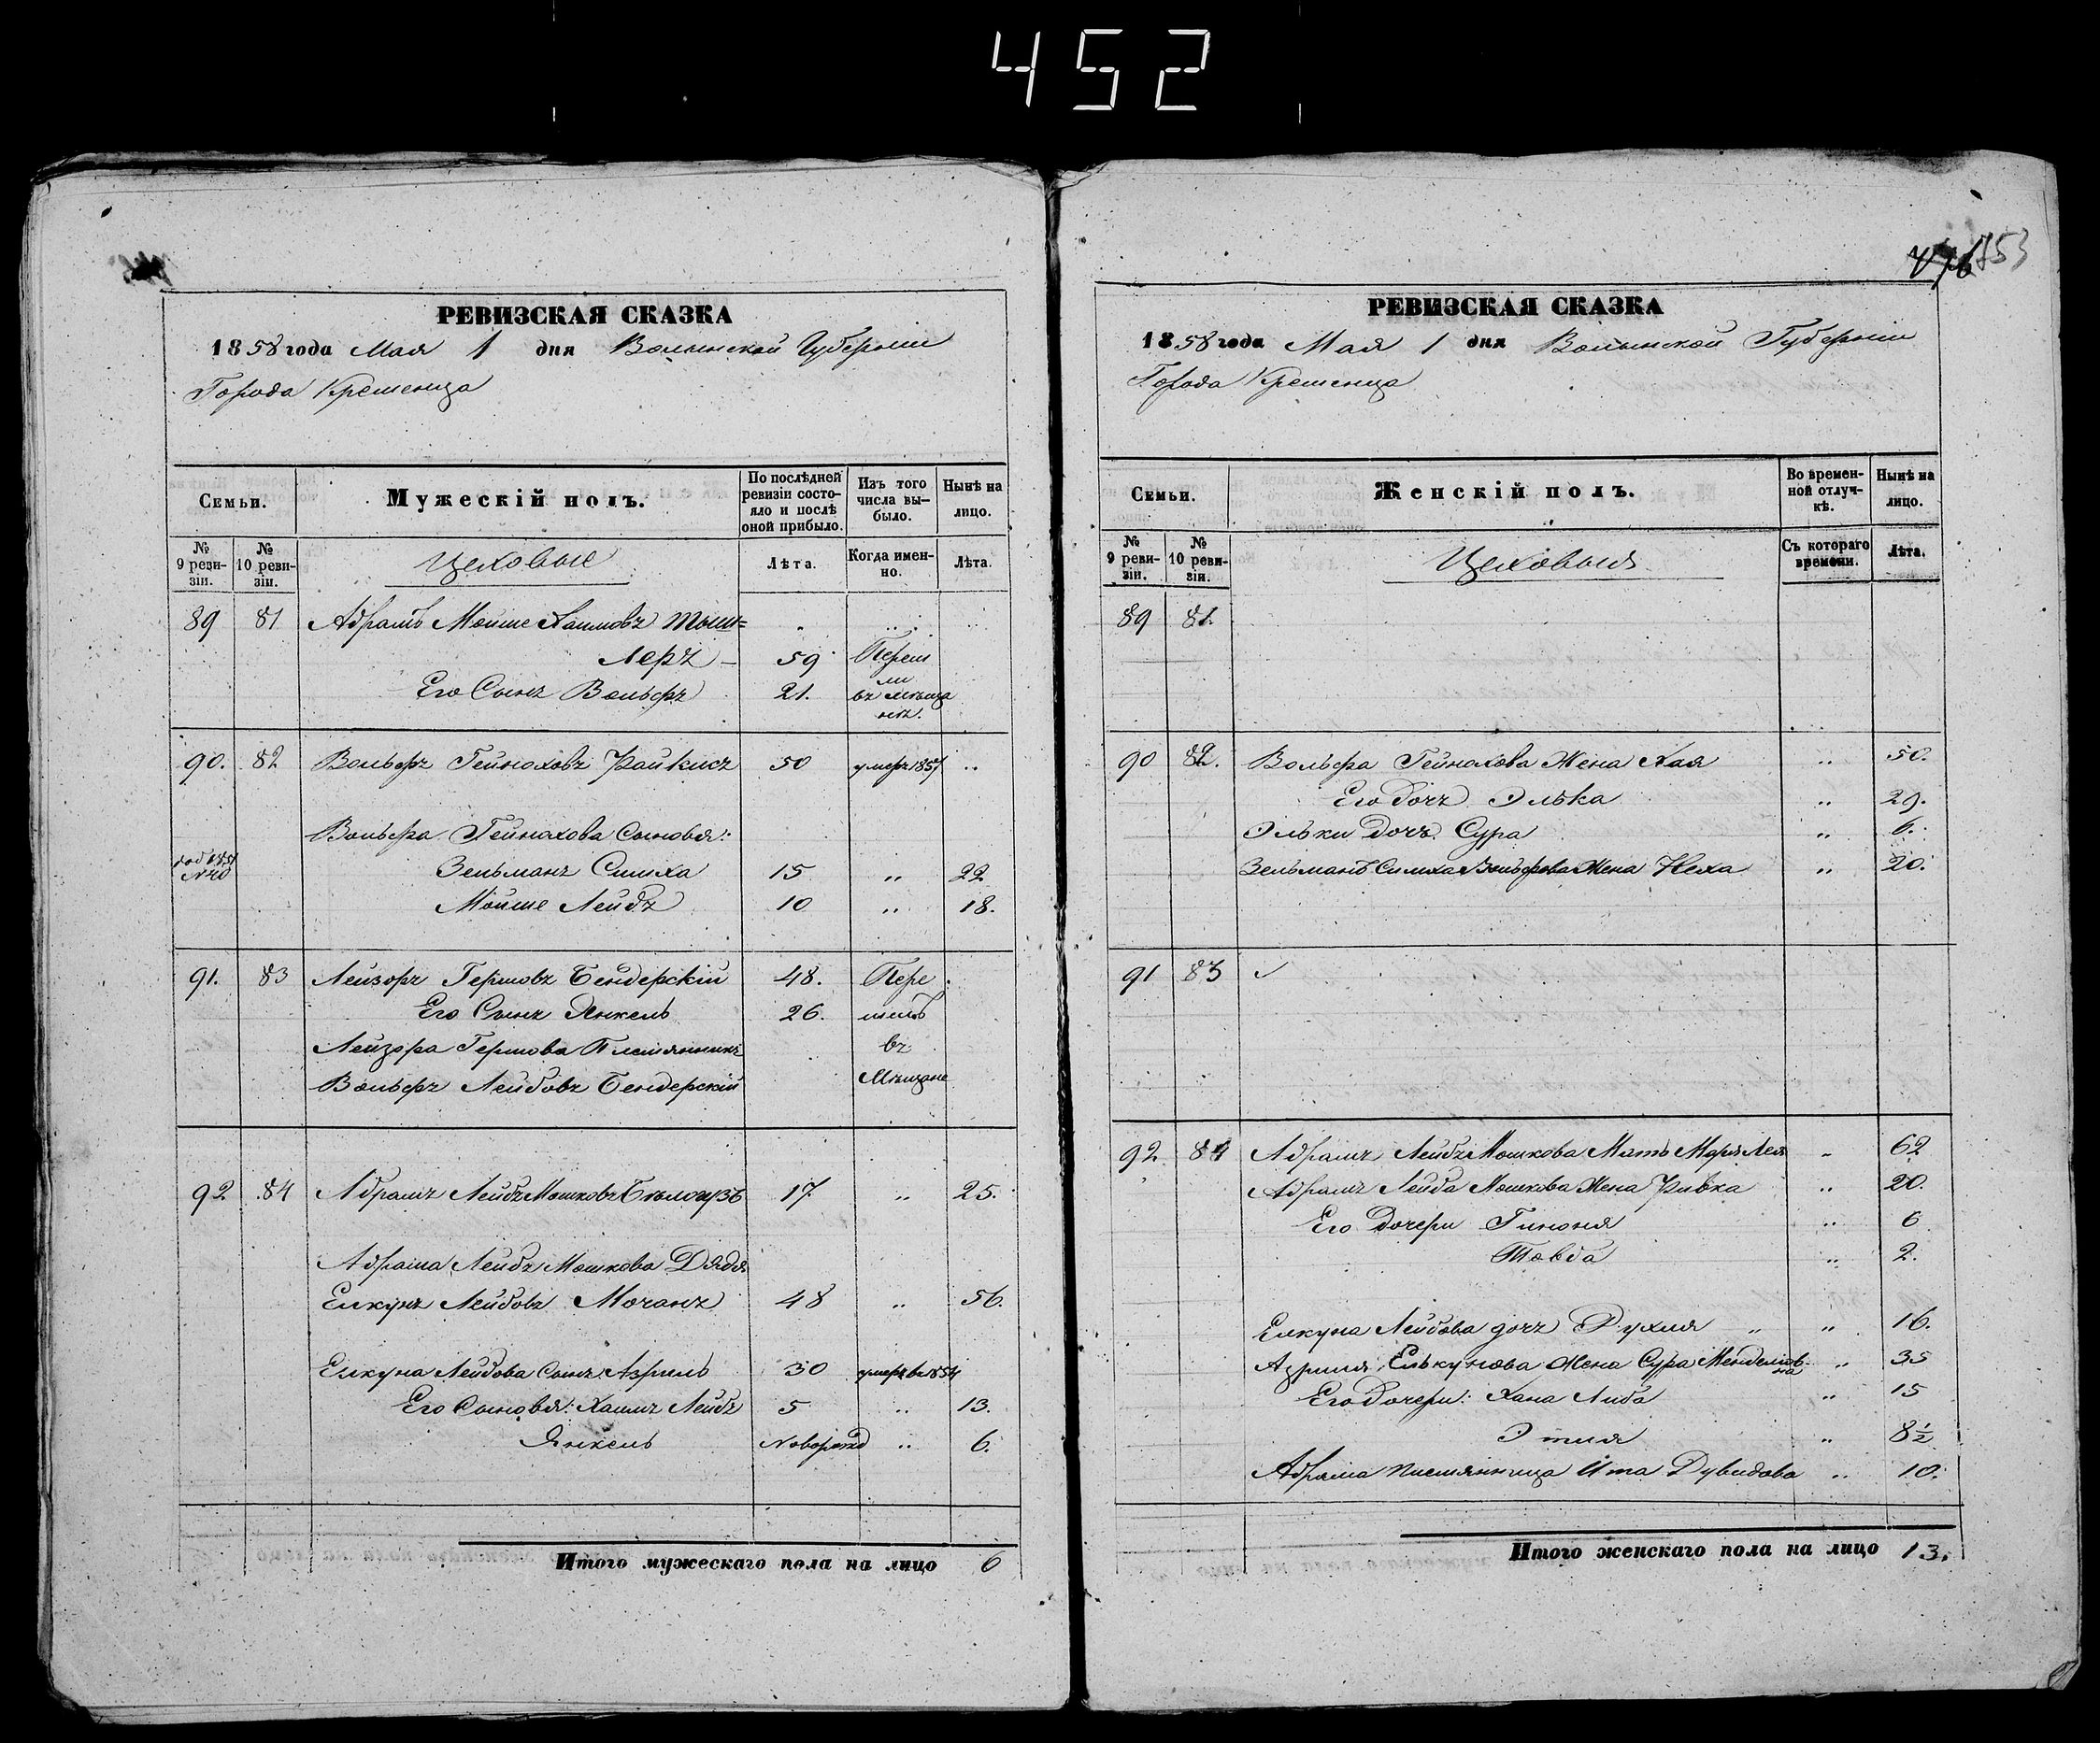 452
РЕВИЗСКАЯ СКАЗКА
1858 года Мая 1 дня Волынской Губернии
Города Кременца
Семьи.
Мужескій полъ.
По послѣдней ревизіи состояло и послѣ оной прибыло.
Изъ того числа выбыло.
Нынѣ на лицо.
№ 9 ревизіи.
№ 10 ревизіи.
Цеховые
Лѣта.
Когда именно.
Лѣта.
89 81 Абрамъ Мойше Хаимовъ Тыш=
леръ — 59 Переш
ли
Его Сынъ Вольфъ 21. въ мѣща
не.
90. 82 Вольфъ Гейноховъ Файкисъ 50 умеръ 1857 "
Вольфа Гейнахова Сыновья:
Зельманъ Симха 15 " 22
Мойше Лейбъ 10 " 18.
91. 83 Лейзоръ Гершовъ Бендерскій 48. Пере
Его Сынъ Янкель 26. шелъ
Лейзора Гершова Племянникъ въ
Вольфъ Лейбовъ Бендерскій Мѣщане
92 84 Абрамъ Лейбъ Мошковъ 17 " 25.
Абрама Лейбъ Мошкова Дядя
Елкунъ Лейбовъ Мочанъ 48 " 56.
Елкуна Лейбова Сынъ Азриль 30 умеръ въ 1854
Его Сыновья: Хаимъ Лейбъ 5 " 13.
Янкель Наворожд " 6.
Итого мужескаго пола на лицо 6
353
РЕВИЗСКАЯ СКАЗКА
1858 года Мая 1 дня Волынской Губернии
Города Кременца
Семьи.
Женскій полъ.
Во временной отлучкѣ.
Нынѣ на лицо.
№ 9 ревизіи.
№ 10 ревизіи.
Цеховыя
Съ котораго времени.
Лѣта.
89 81.
90 82. Вольфа Гейнахова Жена Хая " 50.
Его дочъ Элька " 29.
Эльки Дочъ Сура " 6.
Зельманъ Симха Вольфова Жена Неха " 20.
91 83
92 84 Абрамъ Лейбъ Мошкова Мать Маря Лея " 62
Абрамъ Лейба Мошкова Жена Ривка " 20.
Его Дочери 6
Товба " 2.
Елкуна Лейбова дочъ Рухля " " 16.
Азриля Елькунова Жена Сура Менделиов-
на " 35
Его Дочери: Хана Либа " 15
Этля " 8½
Абрама племянница Ита Дувидова " 10.
Итого женскаго пола на лицо 13.